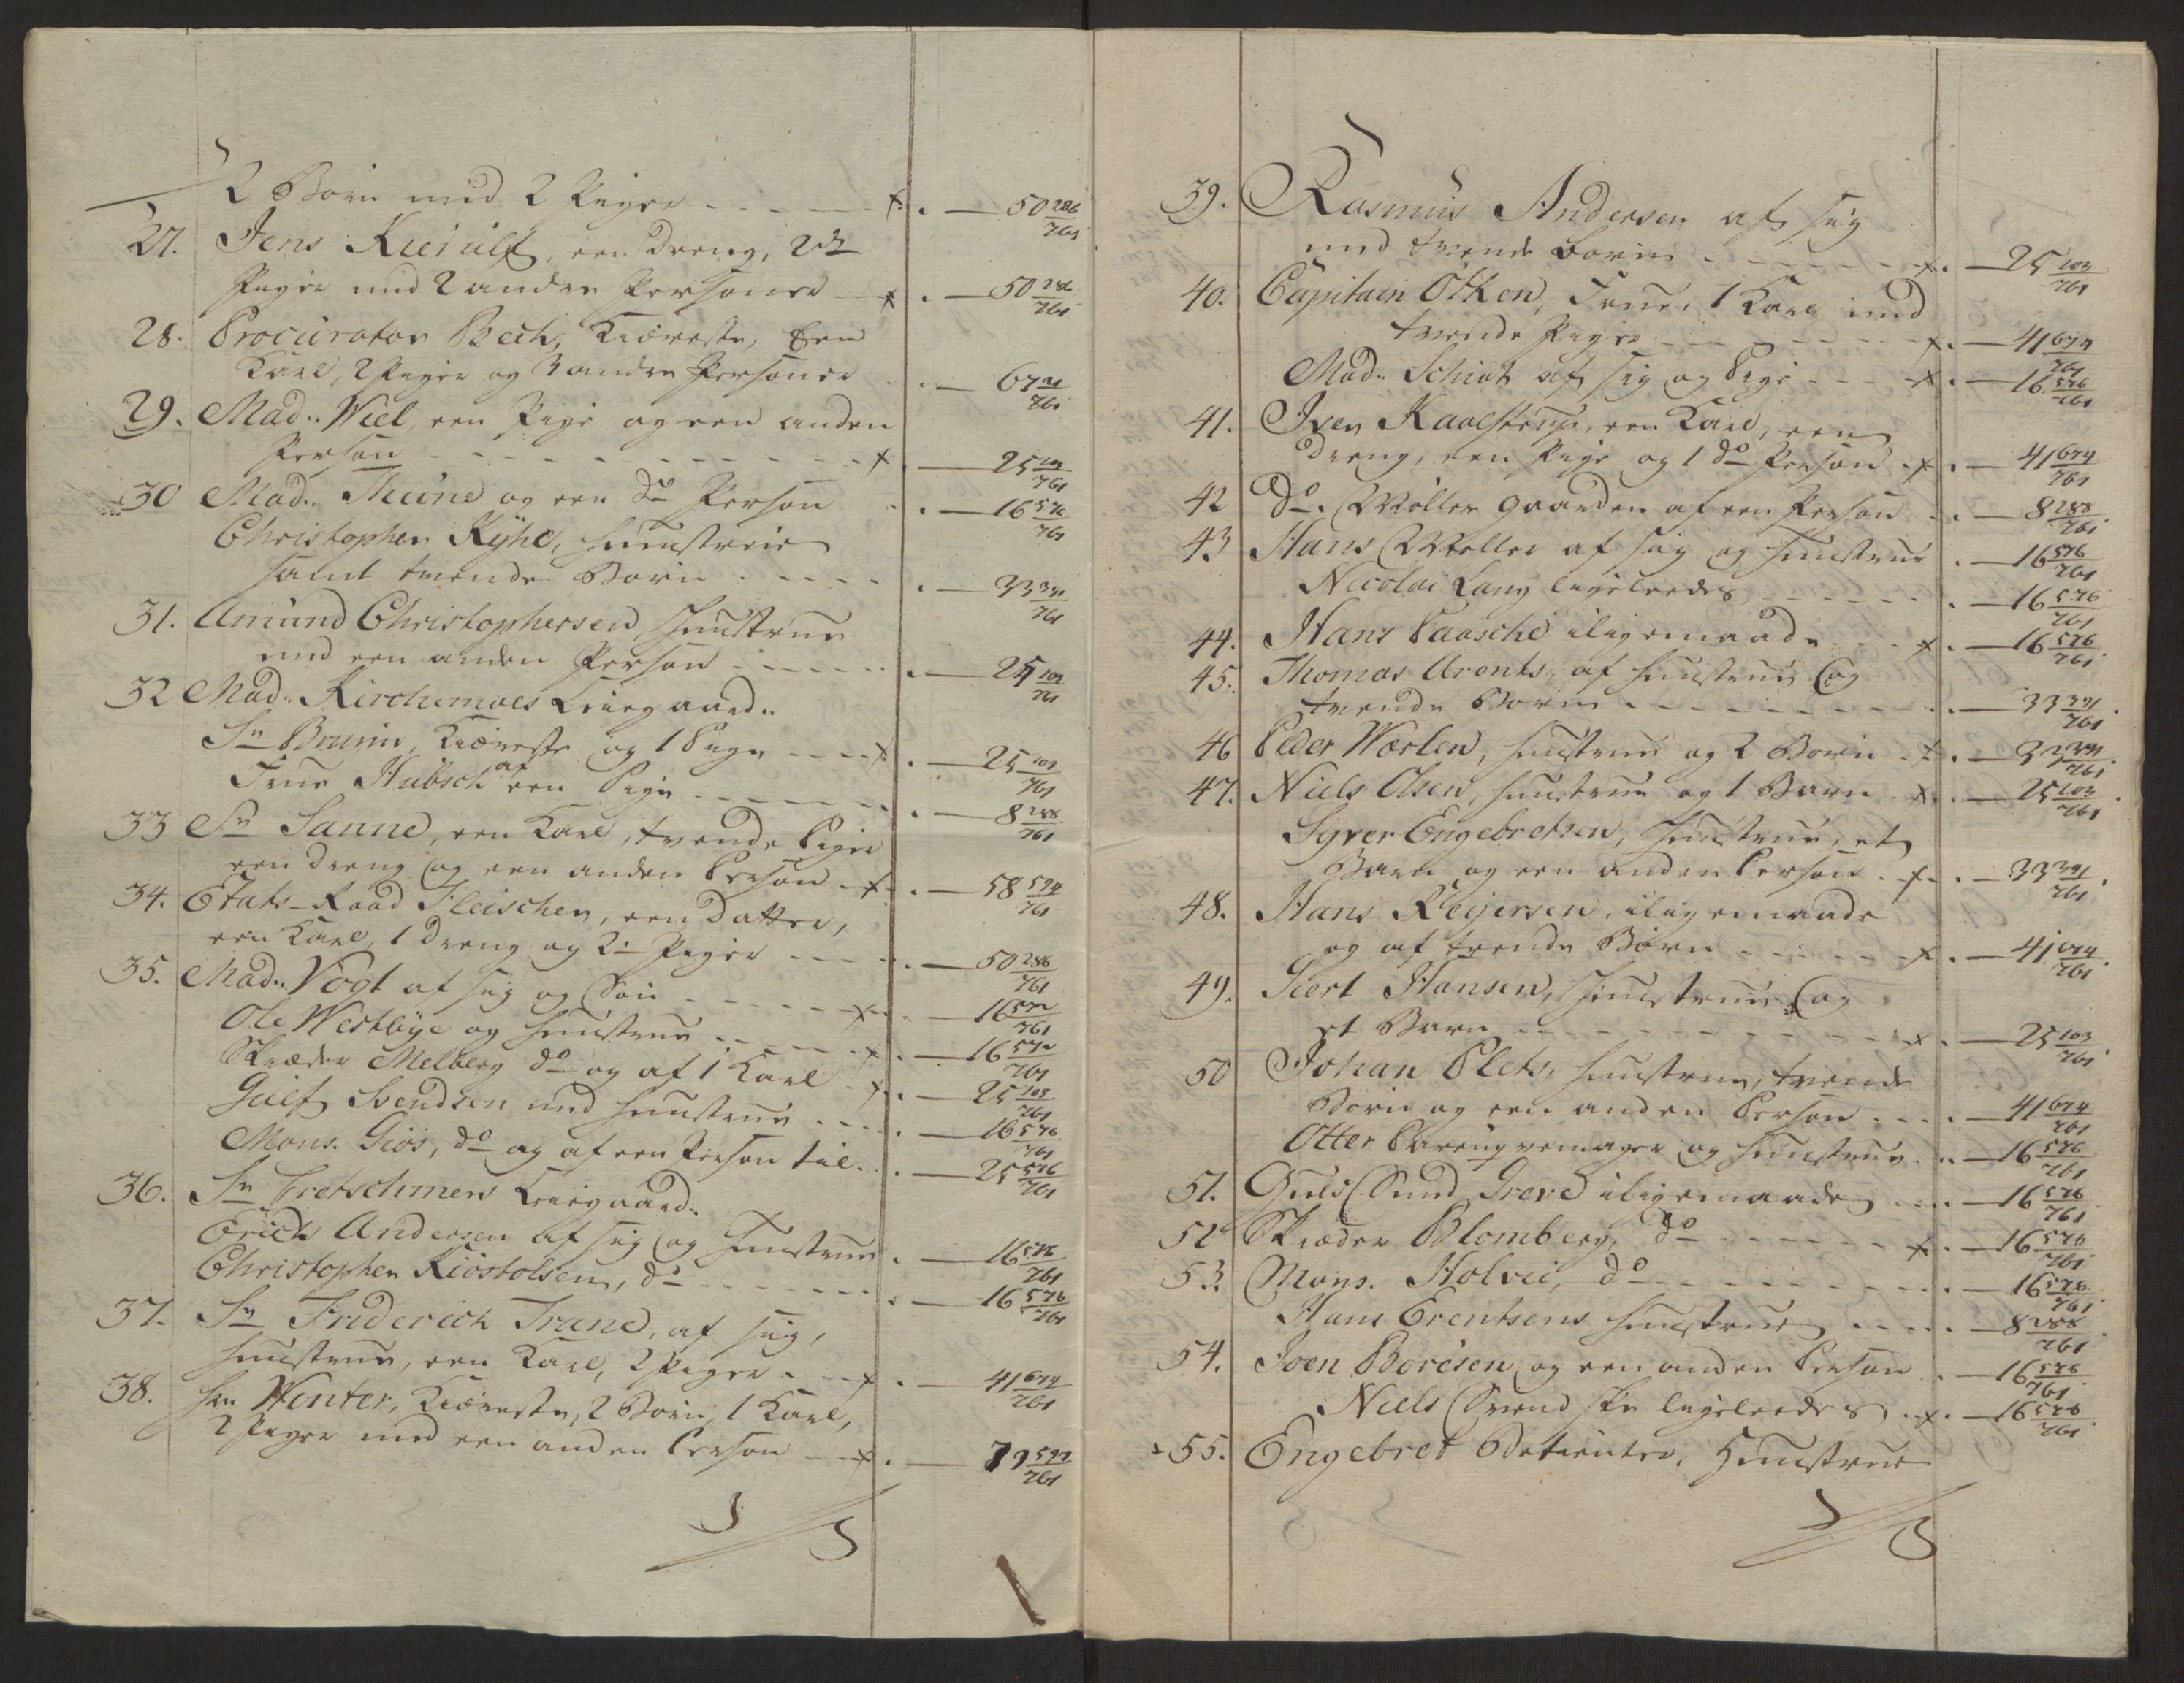 2 Børn med 2 Piger - - - - x. — 50 286/761
27. Jens Kierulf, een Dreng, 2de
Piger med 2 anden Personer - x . — 50 286/761
28. Procurator Bech, Kiæreste, Een
Karl, 2 Piger og 3 anden Personer . — 67 21/761
29. Mad. Wiel, een Pige og een anden
Person - - - - - - - - x . — 25 103/761
30 Mad. Thune og een do Person . — 16 576/761
Christopher Kyhl, Huustrue
samt tvende Børn . - - - . — 33 391/761
31. Amund Christophersen, Huustrue
med een anden Person - - - - . — 25 103/761
32 Mad. Kirchemoes Leiegaard.
Sr Bruun, Kiæreste og 1 Pige - - - x . — 25 103/761
Frue Hübsch af een Pige - - - - . — 8 288/761
33 Sr Sanne, een Karl, tvende Piger
een Dreng og een anden Person - x . — 58 594/761
34. Etats-Raad Fleischer, een Datter,
een Karl, 1 Dreng og 2de Piger - - - . — 50 286/761
35. Mad. Vogt af sig og Søn - - - - x . — 16 576/761
Ole Westbye og Huustrue - - - - x . — 16 576/761
Skræder Melberg do og af 1 Karl x . — 25 103/761
Gulf Svendsen med Huustrue - - . — 16 576/761
Mons. Giøs, do og af een Person til. . — 25 576/761
36. Sr Cretschmers Leiegaard.
Erich Andersen af sig og Huustrue . — 16 576/761
Christopher Kiøstolsen, do - - - - . — 16 576/761
37. Sr Friderich Trane, af sig,
Huustrue, een Karl, 2 Piger - - x . — 41 674/761
38. Hr. Winter, Kiæreste, 2 Børn, 1 Karl,
2 Piger med een anden Person - - x . — 79 597/761
39. Rasmus Andersen af sig
med tvende Børn - - - - - - x. — 25 103/761
40. Capitain Otken, Frue, 1 Karl med
tvende Piger - - - - - - x. — 41 674/761
Mad. Schiøt af sig og Pige - - - x. — 16 576/761
41. Iver Kaalstrup, een Karl, een
Dreng, een Pige og 1 do Person . x . — 41 674/761
42 do. Møller gaarden af een Person . — 8 288/761
43 Hans Møller af sig og Huustrue . — 16 576/761
Nicolai Lang ligeleedes - - - - . — 16 576/761
44. Hans Paasche iligemaade - - x . — 16 576/761
45. Thomas Arents, af Huustrue og
tvende Børn - - - - - - - . — 33 391/761
46 Peder Worlen, Huustrue og 2 Børn x . — 33 391/761
47. Niels Olsen, Huustrue og 1 Barn x . — 25 103/761
Syver Engebretsen, Huustrue, et
Barn og een anden Person . x . — 33 391/761
48. Hans Reiersen, iligemaade
og af trende Børn - - - - x . — 41 674/761
49. Siert Hansen, Huustrue og
et Barn - - - - - - - - x . — 25 103/761
50 Johan Plets, Huustrue, tvende
Børn og een anden Person - - . — 41 674/761
Otter Parugvemager og Huustrue . — 16 576/761
51. Guld Smed Greve iligemaade - - . — 16 576/761
52 Skræder Blomberg, do - - - - x . — 16 576/761
53. Mons. Holvei, do - - - - - . — 16 576/761
Hans Erentsens Huustrue - - - . — 8 288/761
54. Joen Boresen og een anden Person . — 16 576/761
Niels Svendske ligeleedes . x . — 16 576/761
55. Engebret Betienter, Huustrue